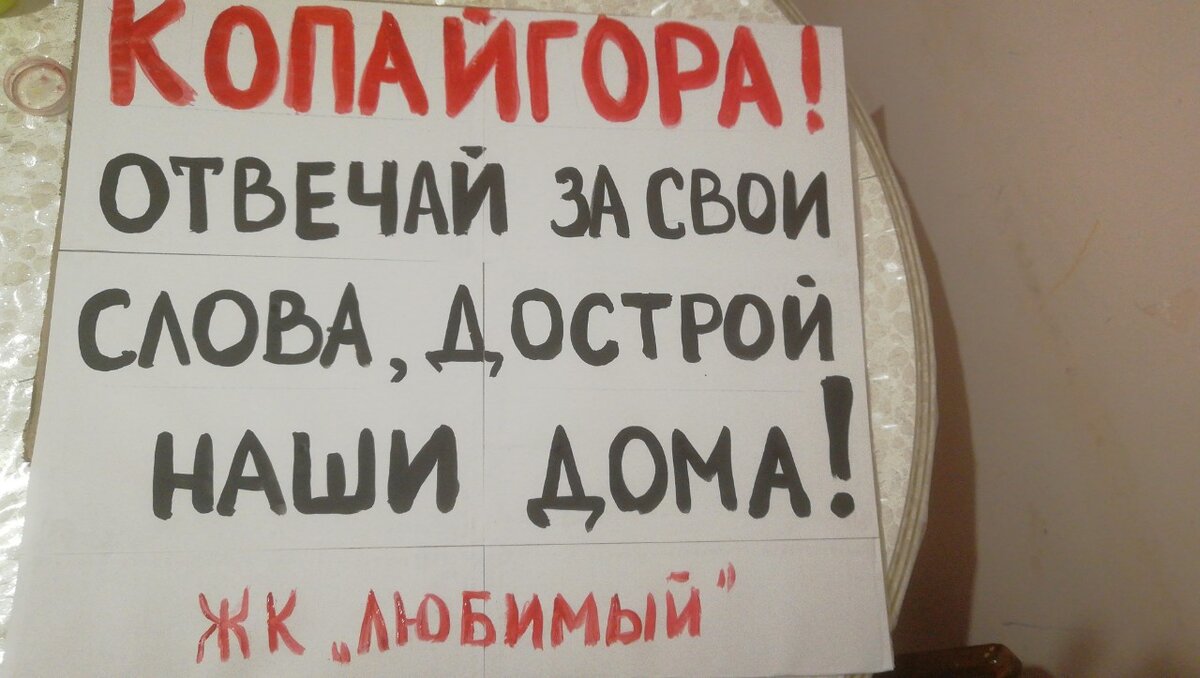 КОПАЙГОРА!
ОТВЕЧАЙ ЗА СВОИ
СЛОВА, ДОСТРОЙ
НАШИ ДОМА!
ЖК „ЛЮБИМЫЙ"